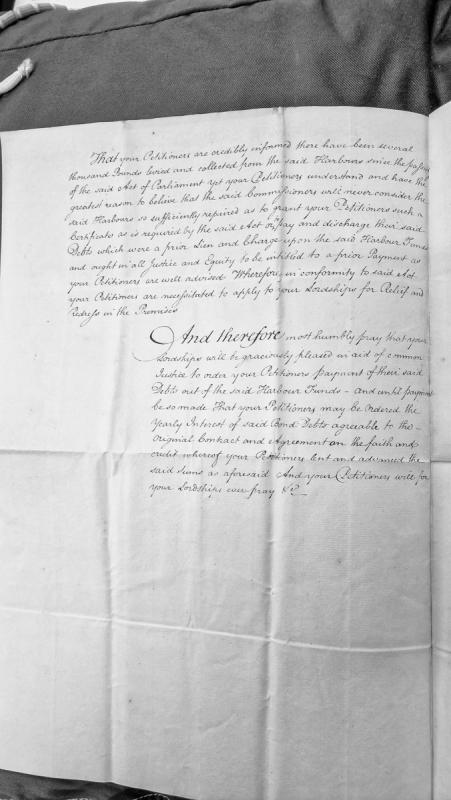 That your Petitioners are credibly informed there have been several
thousand Pounds levied and collected from the said Harbours since the passing
of the said Act of Parliament Yet your Petitioners understand and have the
greatest reason to believe that the said Commissioners will never consider the
said Harbours so sufficiently repaired as to grant your Petitioners such a
Certificate as is required by the said Act or pay and discharge their said
Debts which were a prior Lien and Charge upon the said Harbour Funds
and ought in all Justice and Equity to be intitled to a prior Payment as
your Petitioners are well advised Wherefore in conformity to said Act
your Petitioners are necessitated to apply to your Lordships for Relief and
Redress in the Premises
And therefore most humbly pray that your
Lordships will be graciously pleased in aid of common
Justice to order your Petitioners payment of their said
Debts out of the said Harbour Funds – and until payment
be so made That your Petitioners may be Ordered the
Yearly Interest of said Bond Debts agreable to the –
original Contract and Agreement on the faith and
credit whereof your Petitioners lent and advanced the
said sums as aforesaid And your Petitioners will for
your Lordships ever pray &c